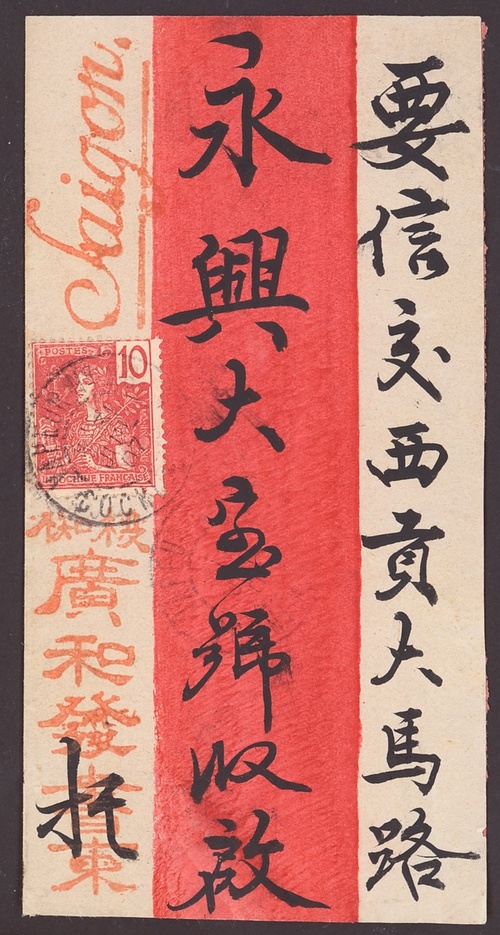 要信交西貢大馬路
永興大宝號收啟
Saigon.
POSTES
10
INDOCHINE FRANÇAISE
廣和發書柬
托